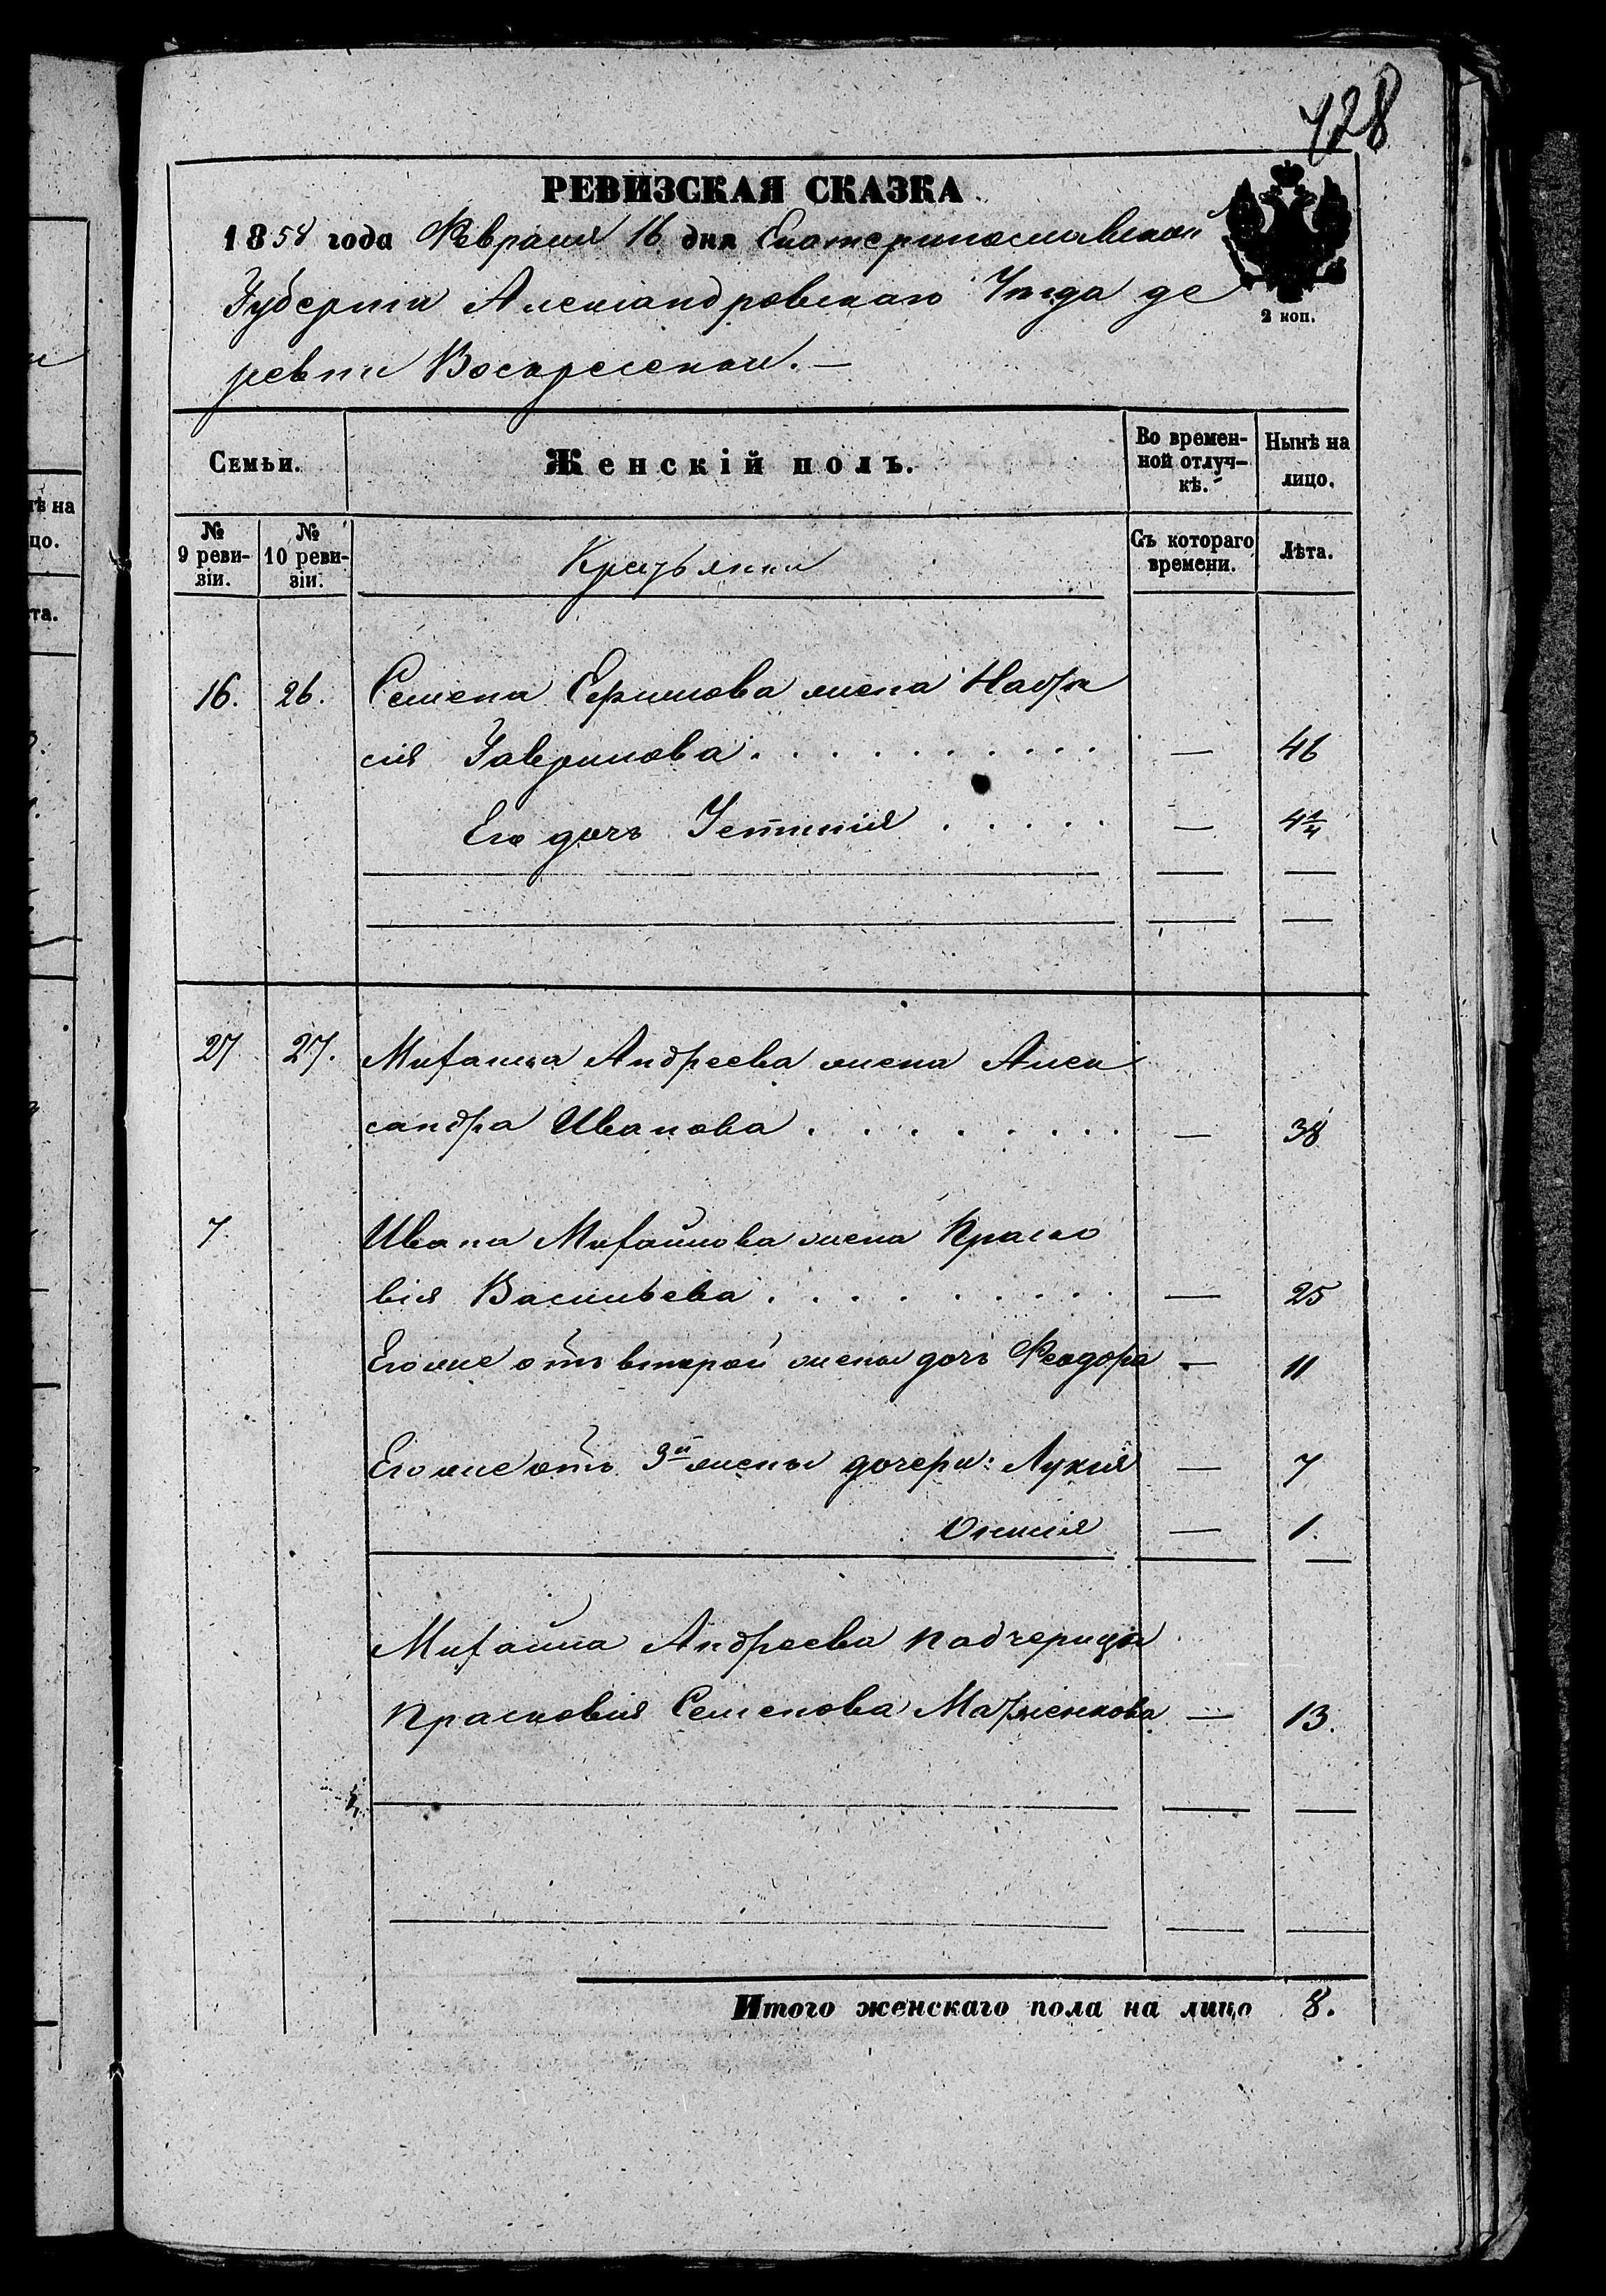 428
РЕВИЗСКАЯ СКАЗКА
1858 года Февраля 16 дня Екатеринославской
Губернии Александровскаго Уѣзда де
ревни Воскресенки. —
2 коп.
Семьи. Женскій полъ. Во времен-ной отлуч-кѣ. Нынѣ на лицо.
№ 9 реви-зіи. № 10 реви-зіи. Крестьянки Съ котораго времени. Лѣта.
16. 26. Семена Ефимова жена Настя
сія Гаврилова . . . . . . . . . — 46
Его дочь Устинія . . . . . — 4¼
27 27. Михаила Андреева жена Алек
сандра Иванова . . . . . . . . — 38
7. Ивана Михайлова жена Праско
вія Васильева . . . . . . . . . — 25
Его же отъ второй жены дочь Феодора — 11
Его же отъ 3й жены дочери: Лукія — 7
— 1.
Михайла Андреева падчерица
Прасковія Семенова — 13.
Итого женскаго пола на лицо 8.